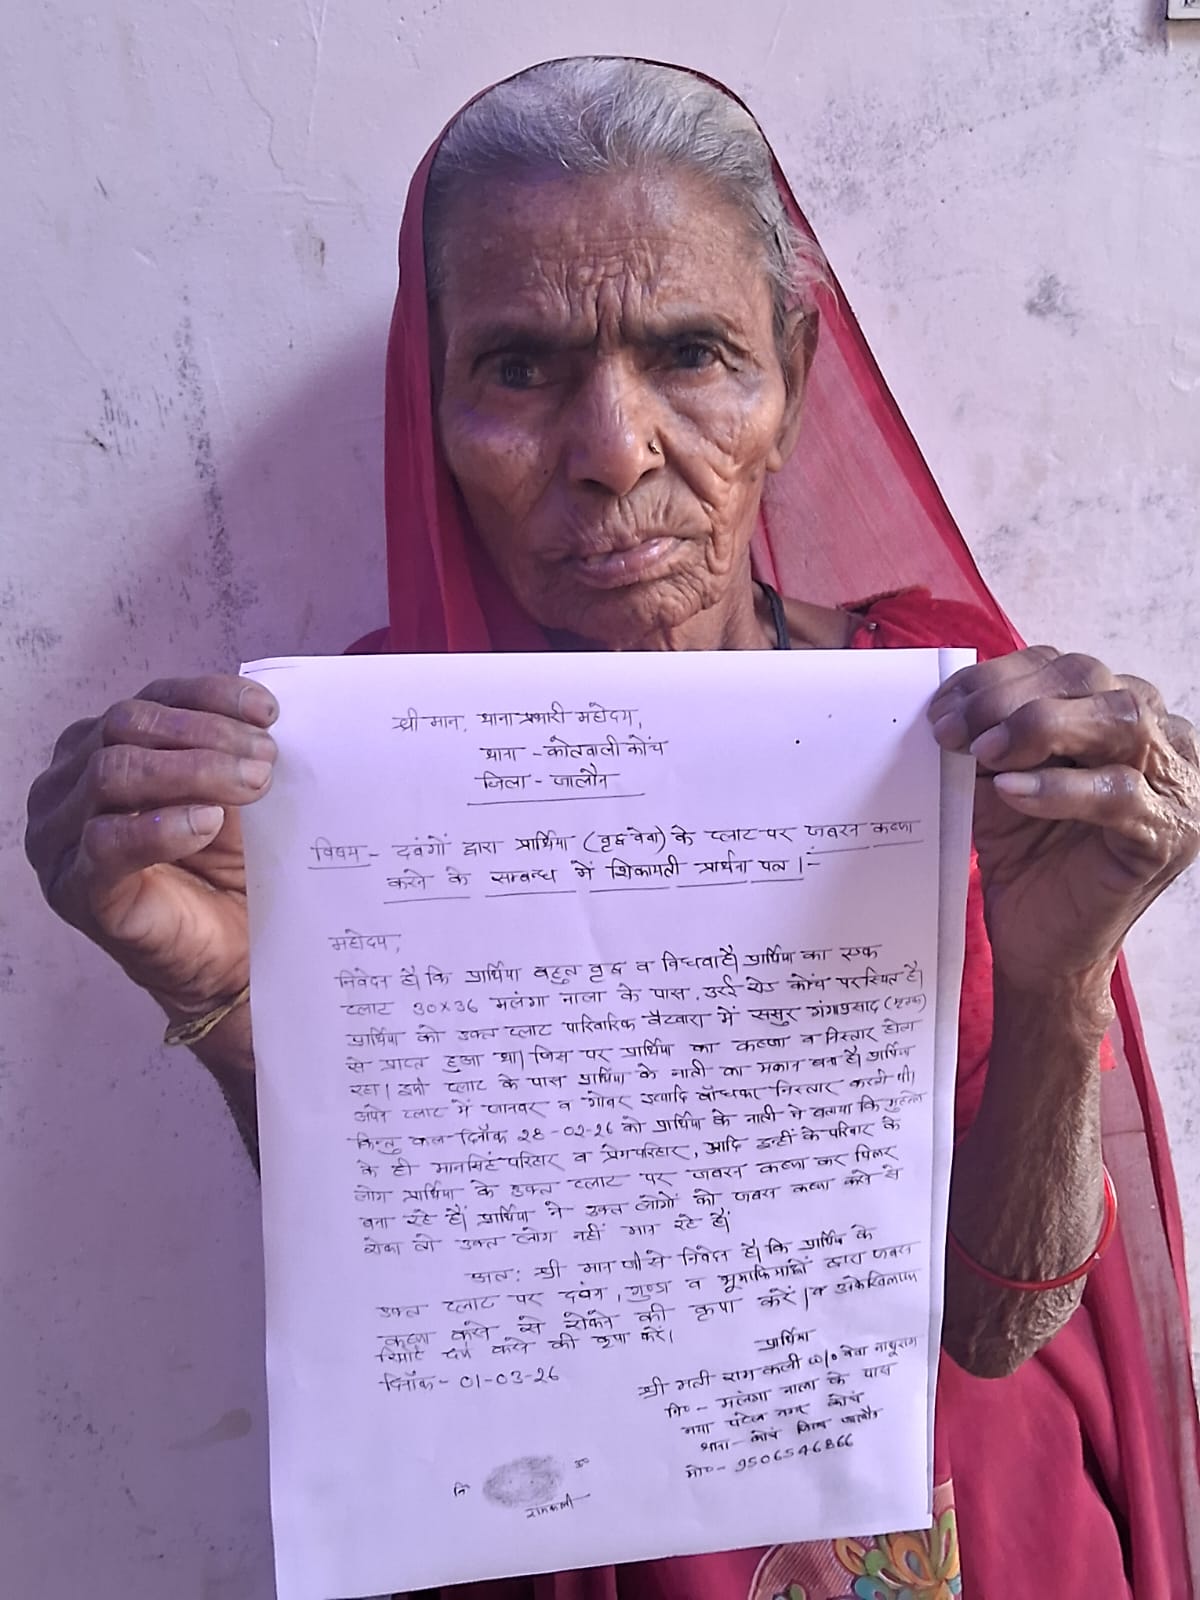 श्रीमान, थाना प्रभारी महोदय,
थाना - कोतवाली कोंच
जिला - जालौन
विषय - दबंगों द्वारा प्रार्थिया (वृद्ध वेवा) के प्लाट पर जबरन कब्जा
करने के सम्बन्ध में शिकायती प्रार्थना पत्र।:-
महोदय,
निवेदन है। कि प्रार्थिया बहुत वृद्ध व विधवा है। प्रार्थिया का एक
प्लाट 30×36 मलंगा नाला के पास, उरई रोड कोंच पर स्थित है।
प्रार्थिया को उक्त प्लाट पारिवारिक बैटवारा में ससुर गंगाप्रसाद (मृतक)
से प्राप्त हुआ था। जिस पर प्रार्थिया का कब्जा व निस्तार होता
रहा। इसी प्लाट के पास प्रार्थिया के नाती का मकान बना है। प्रार्थिया
अपने प्लाट में जानवर व गोबर इत्यादि बाँधकर निस्तार करती थी।
किन्तु कल दिनाँक 28-02-26 को प्रार्थिया के नाती ने बताया कि मुहल्ले
के ही मानसिंह परिहार व प्रेम परिहार, आदि इन्हीं के परिवार के
लोग प्रार्थिया के उक्त प्लाट पर जबरन कब्जा कर पिलर
बना रहे हैं। प्रार्थिया ने उक्त लोगों को जबरन कब्जा करने से
रोका तो उक्त लोग नहीं मान रहे हैं।
अतः श्री मान जी से निवेदन है। कि प्रार्थिया के
उक्त प्लाट पर दबंग, गुण्डा व भूमाफियाओं द्वारा जबरन
कब्जा करने से रोकने की कृपा करें। व उनके खिलाफ
रिपोर्ट दर्ज करने की कृपा करें।
दिनाँक - 01-03-26
प्रार्थिया
श्री मती राम कली w/o वेवा नाथूराम
नि० - मलंगा नाला के पास
नया पटेल नगर कोंच
थाना - कोंच जिला जालौन
मो० - 9506546866
नि० अं०
रामकली